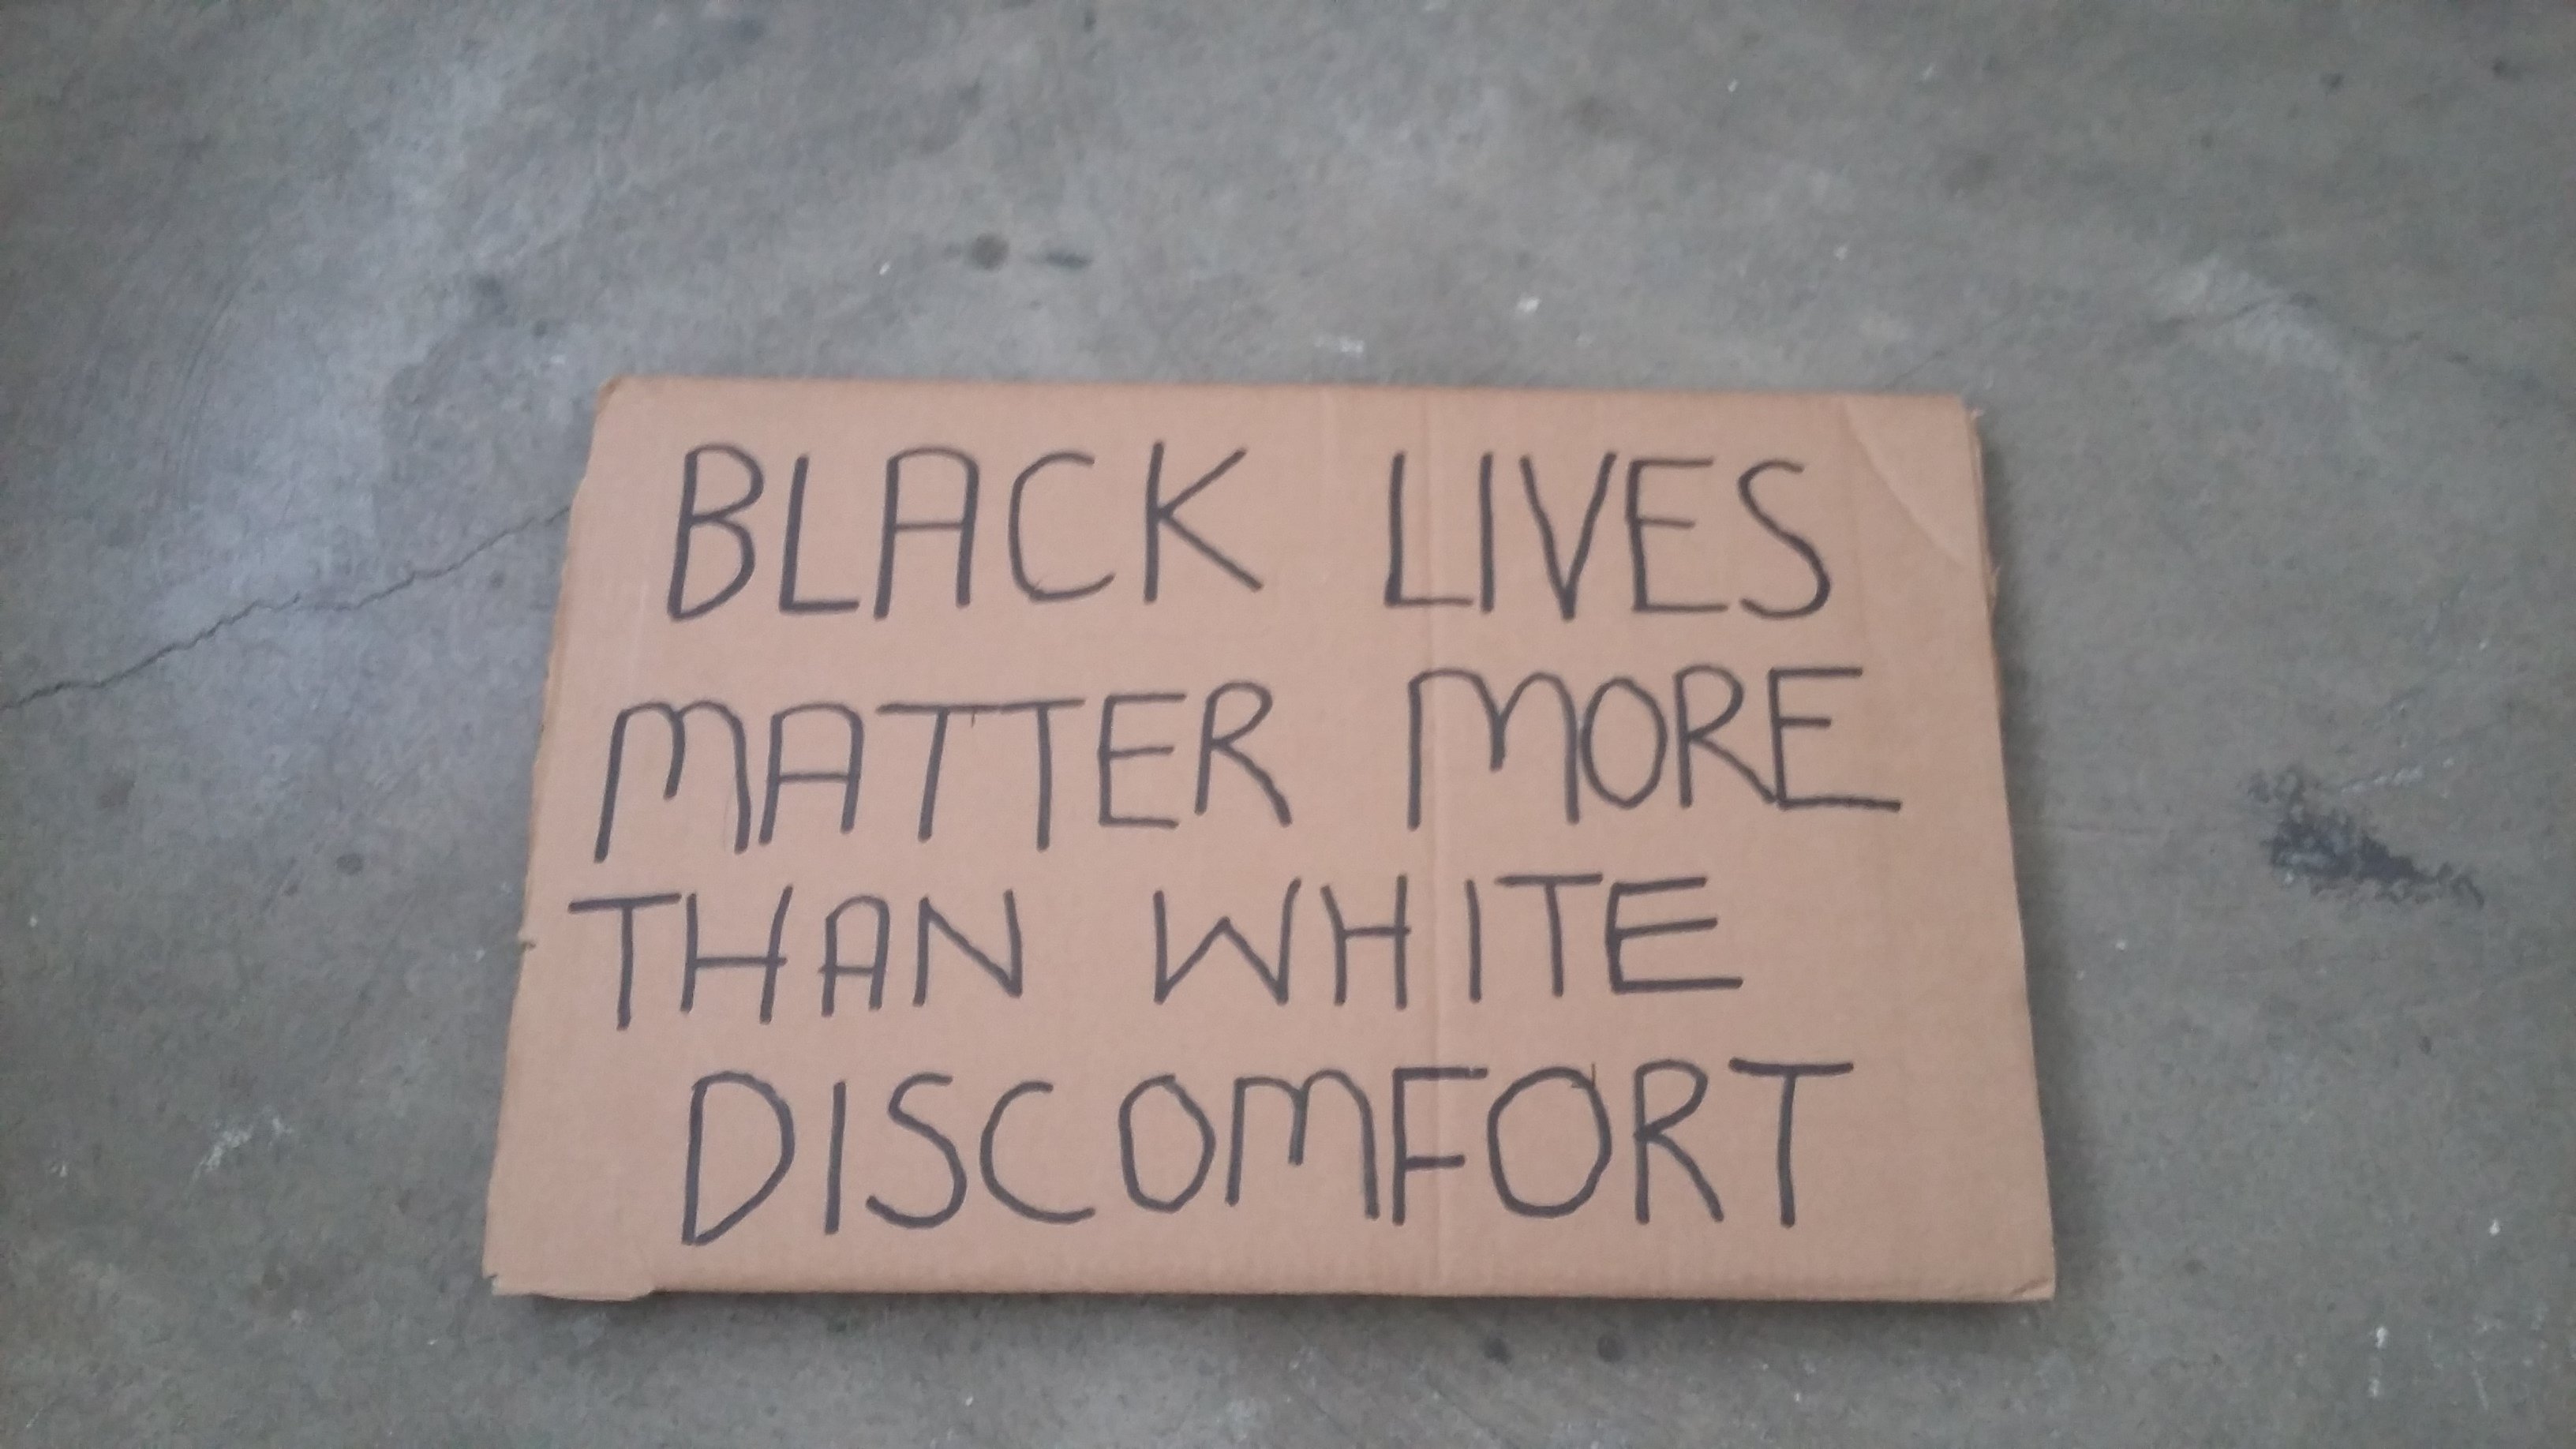 BLACK LIVES
MATTER MORE
THAN WHITE
DISCOMFORT